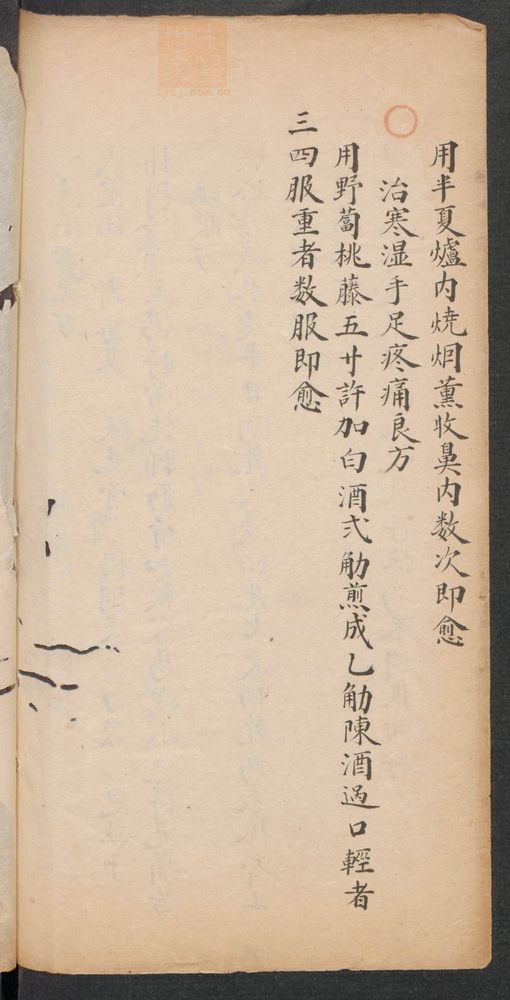 用半夏爐内焼烟薰收鼻内数次即愈
治寒湿手足疼痛良方
用野蔔桃藤五廿許加白酒弍觔煎成乚觔陳酒過口輕者
三四服重者数服即愈